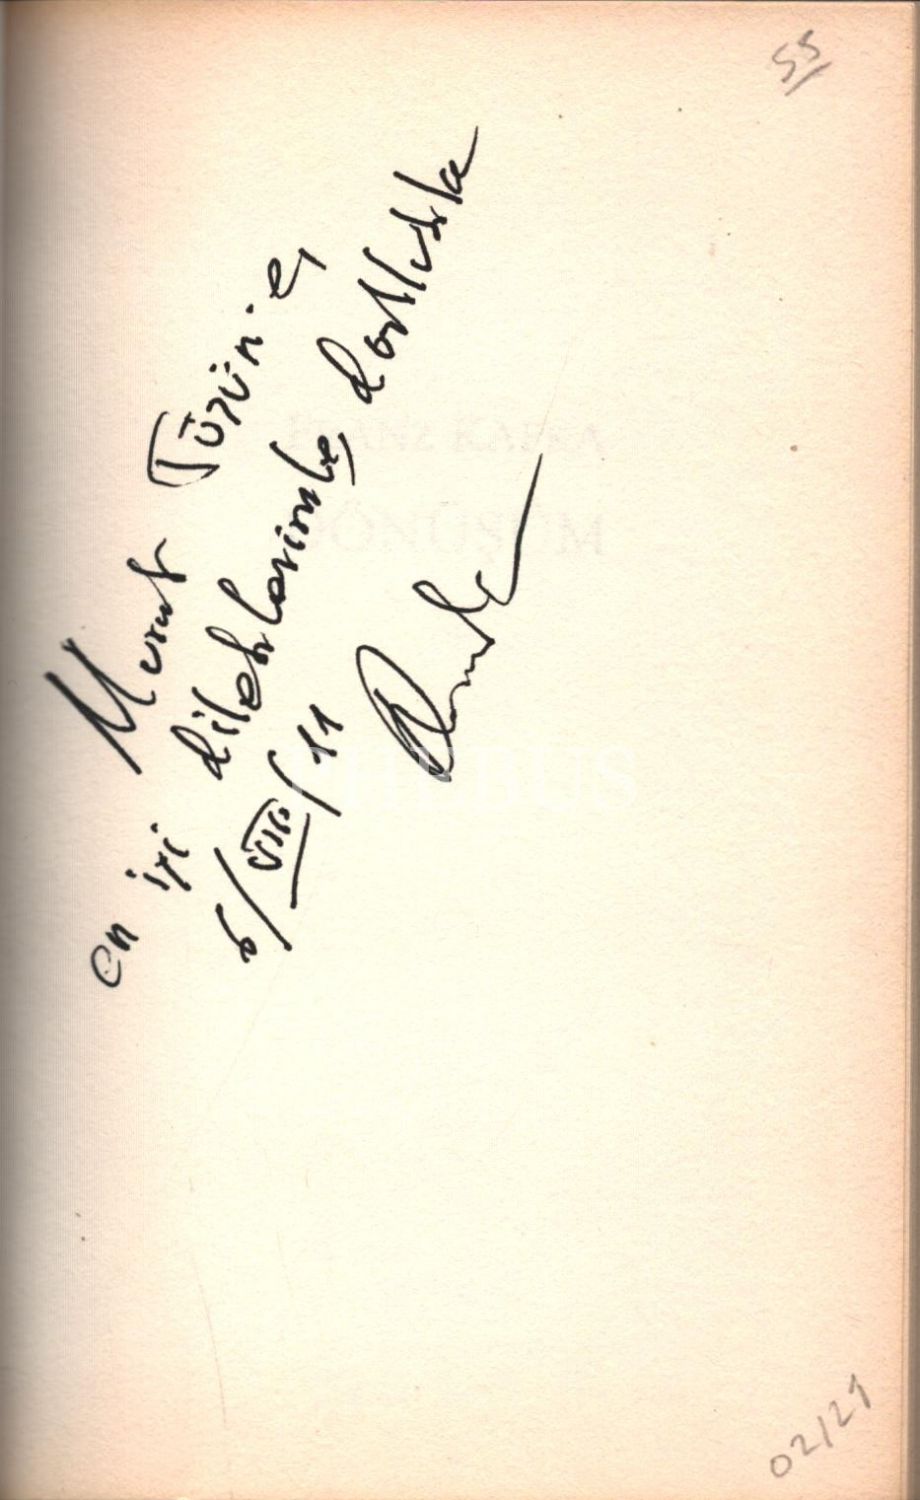 55
Murat Türün'e,
en iyi dileklerimle, dostlukla
6/VIII/11
FRANZ KAFKA
DÖNÜŞÜM
PHEBUS
02/21